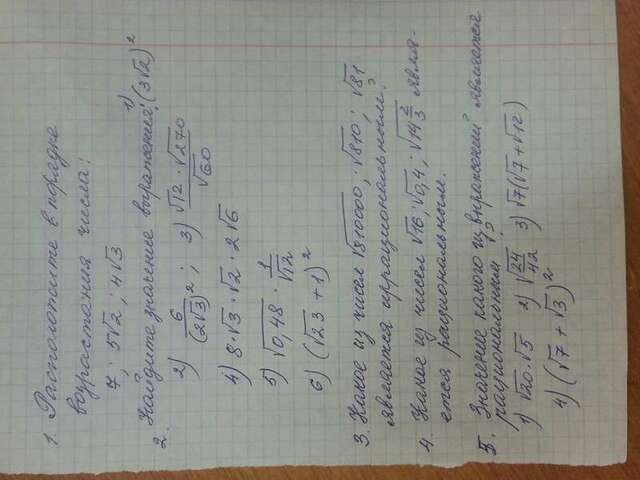 1. Расположите в порядке
возрастания числа:
7; 5√2; 4√3
2. Найдите значение выражения: 1) (3√2)²
2) 6/(2√3)²; 3) √12 · √270/√60
4) 8·√3·√2·2√6
5) √0,48 · 1/√12
6) (√23 + 1)²
3. Какое из чисел √810000; √810; √81
является иррациональным?
4. Какое из чисел √16; √0,4; √14 2/3 явля-
ется рациональным.
5. Значение какого из выражений является
рациональным?
1) √20·√5 2) √24/42 3) √7(√7+√12)
4) (√7 + √3)²